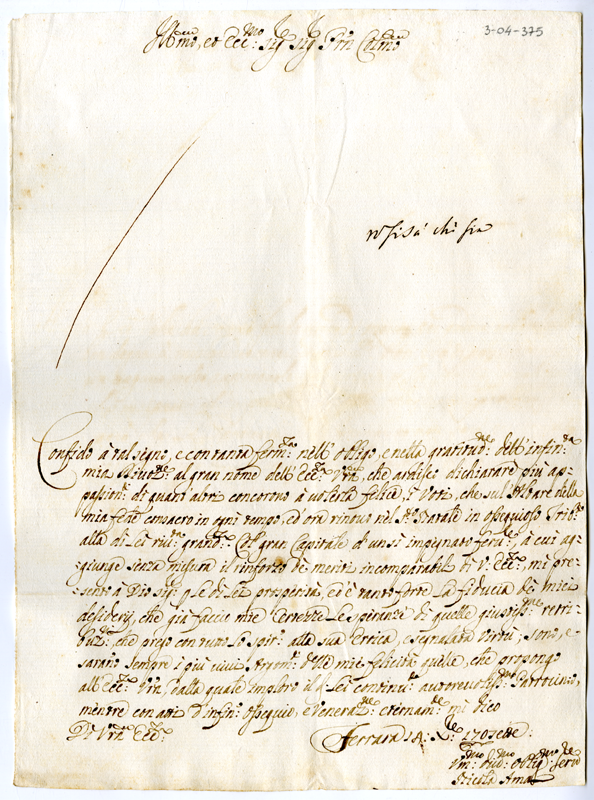 Ill.mo, et Ecc:mo Sig.r Sig.r Pron Colmo
3-04-375
nõ si sa chi sia
Confido à tal segno, e con tanta ferm:za nell' obligo, e nella gratitud:ne dell' infin:ta
mia divoz:ne al gran nome dell' Ecc:za Vra, che ardisco dichiarare più ap-
passion: di quanti altri concorono à volerla felice, i Voti, che sul' Altare della
mia fede consacro in ogni tempo, ed' ora rinovo nel S: Natale in ossequioso Trib:
alla di Lei riv:ma grand:za Col gran Capitale di un sì impegnato ferv:e à cui ag-
giunge senza misura il rinforzo de meriti incomparabili di V: Ecc:za, mi pre-
sento à Dio sig: p le di Lei prosperità, ed è tanto forte la fiducia de miei
desiderij, che già faccio mie Certezze le speranze di quelle giustiss:me retri-
buz:ni, che prego con tutto lo spir: alla sua Eroica, e segnalata virtù; sono, e
saranno sempre i più vivi Arom: delle mie felicità quelle, che propongo
all' Ecc:za Vra, dalla quale imploro il di Lei continu: autorevoliss:mo Patrocinio,
mentre con atti d' infin: ossequio, e Veneraz:ne eternam:te mi dico
Di Vra Ecc:za
Ferrara 14: X:bre 1702
Um:mo Div:mo Oblig:mo Serv:
Nicola